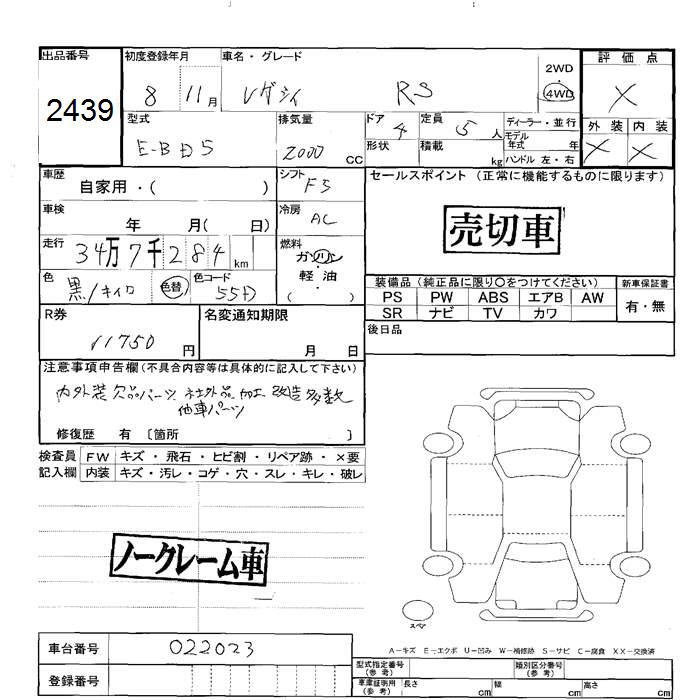 出品番号
2439
初度登録年月
8 11月
車名・グレード
レガシィ RS
2WD
4WD
評価点
X
外装 内装
X X
型式
E-BD5
排気量
2000 CC
ドア 4
形状
定員 5 人
積載 kg
ディーラー・並行
モデル年式 年
ハンドル 左・右
車歴
自家用・( )
シフト F5
セールスポイント (正常に機能するものに限ります)
売切車
車検
年 月( 日)
冷房 AC
走行 34万7千284 km
燃料
ガソリン
軽・油
( )
色 黒/キイロ 色替 色コード 55D
装備品(純正品に限り〇をつけてください)
PS PW ABS エアB AW
SR ナビ TV カワ
新車保証書
有・無
後日品
R券
11750 円
名変通知期限
月 日
注意事項申告欄(不具合内容等は具体的に記入して下さい)
内外装 欠品パーツ 社外品 加工 改造 多数
他車パーツ
修復歴 有 〔箇所 〕
検査員記入欄
FW キズ・飛石・ヒビ割・リペア跡・×要
内装 キズ・汚レ・コゲ・穴・スレ・キレ・破レ
ノークレーム車
スペア
A−キズ E−エクボ U−凹み W−補修跡 S−サビ C−腐食 XX−交換済
車台番号 022023
登録番号
型式指定番号(参考)
類別区分番号(参考)
車庫証明用(参考) 長さ cm 幅 cm 高さ cm